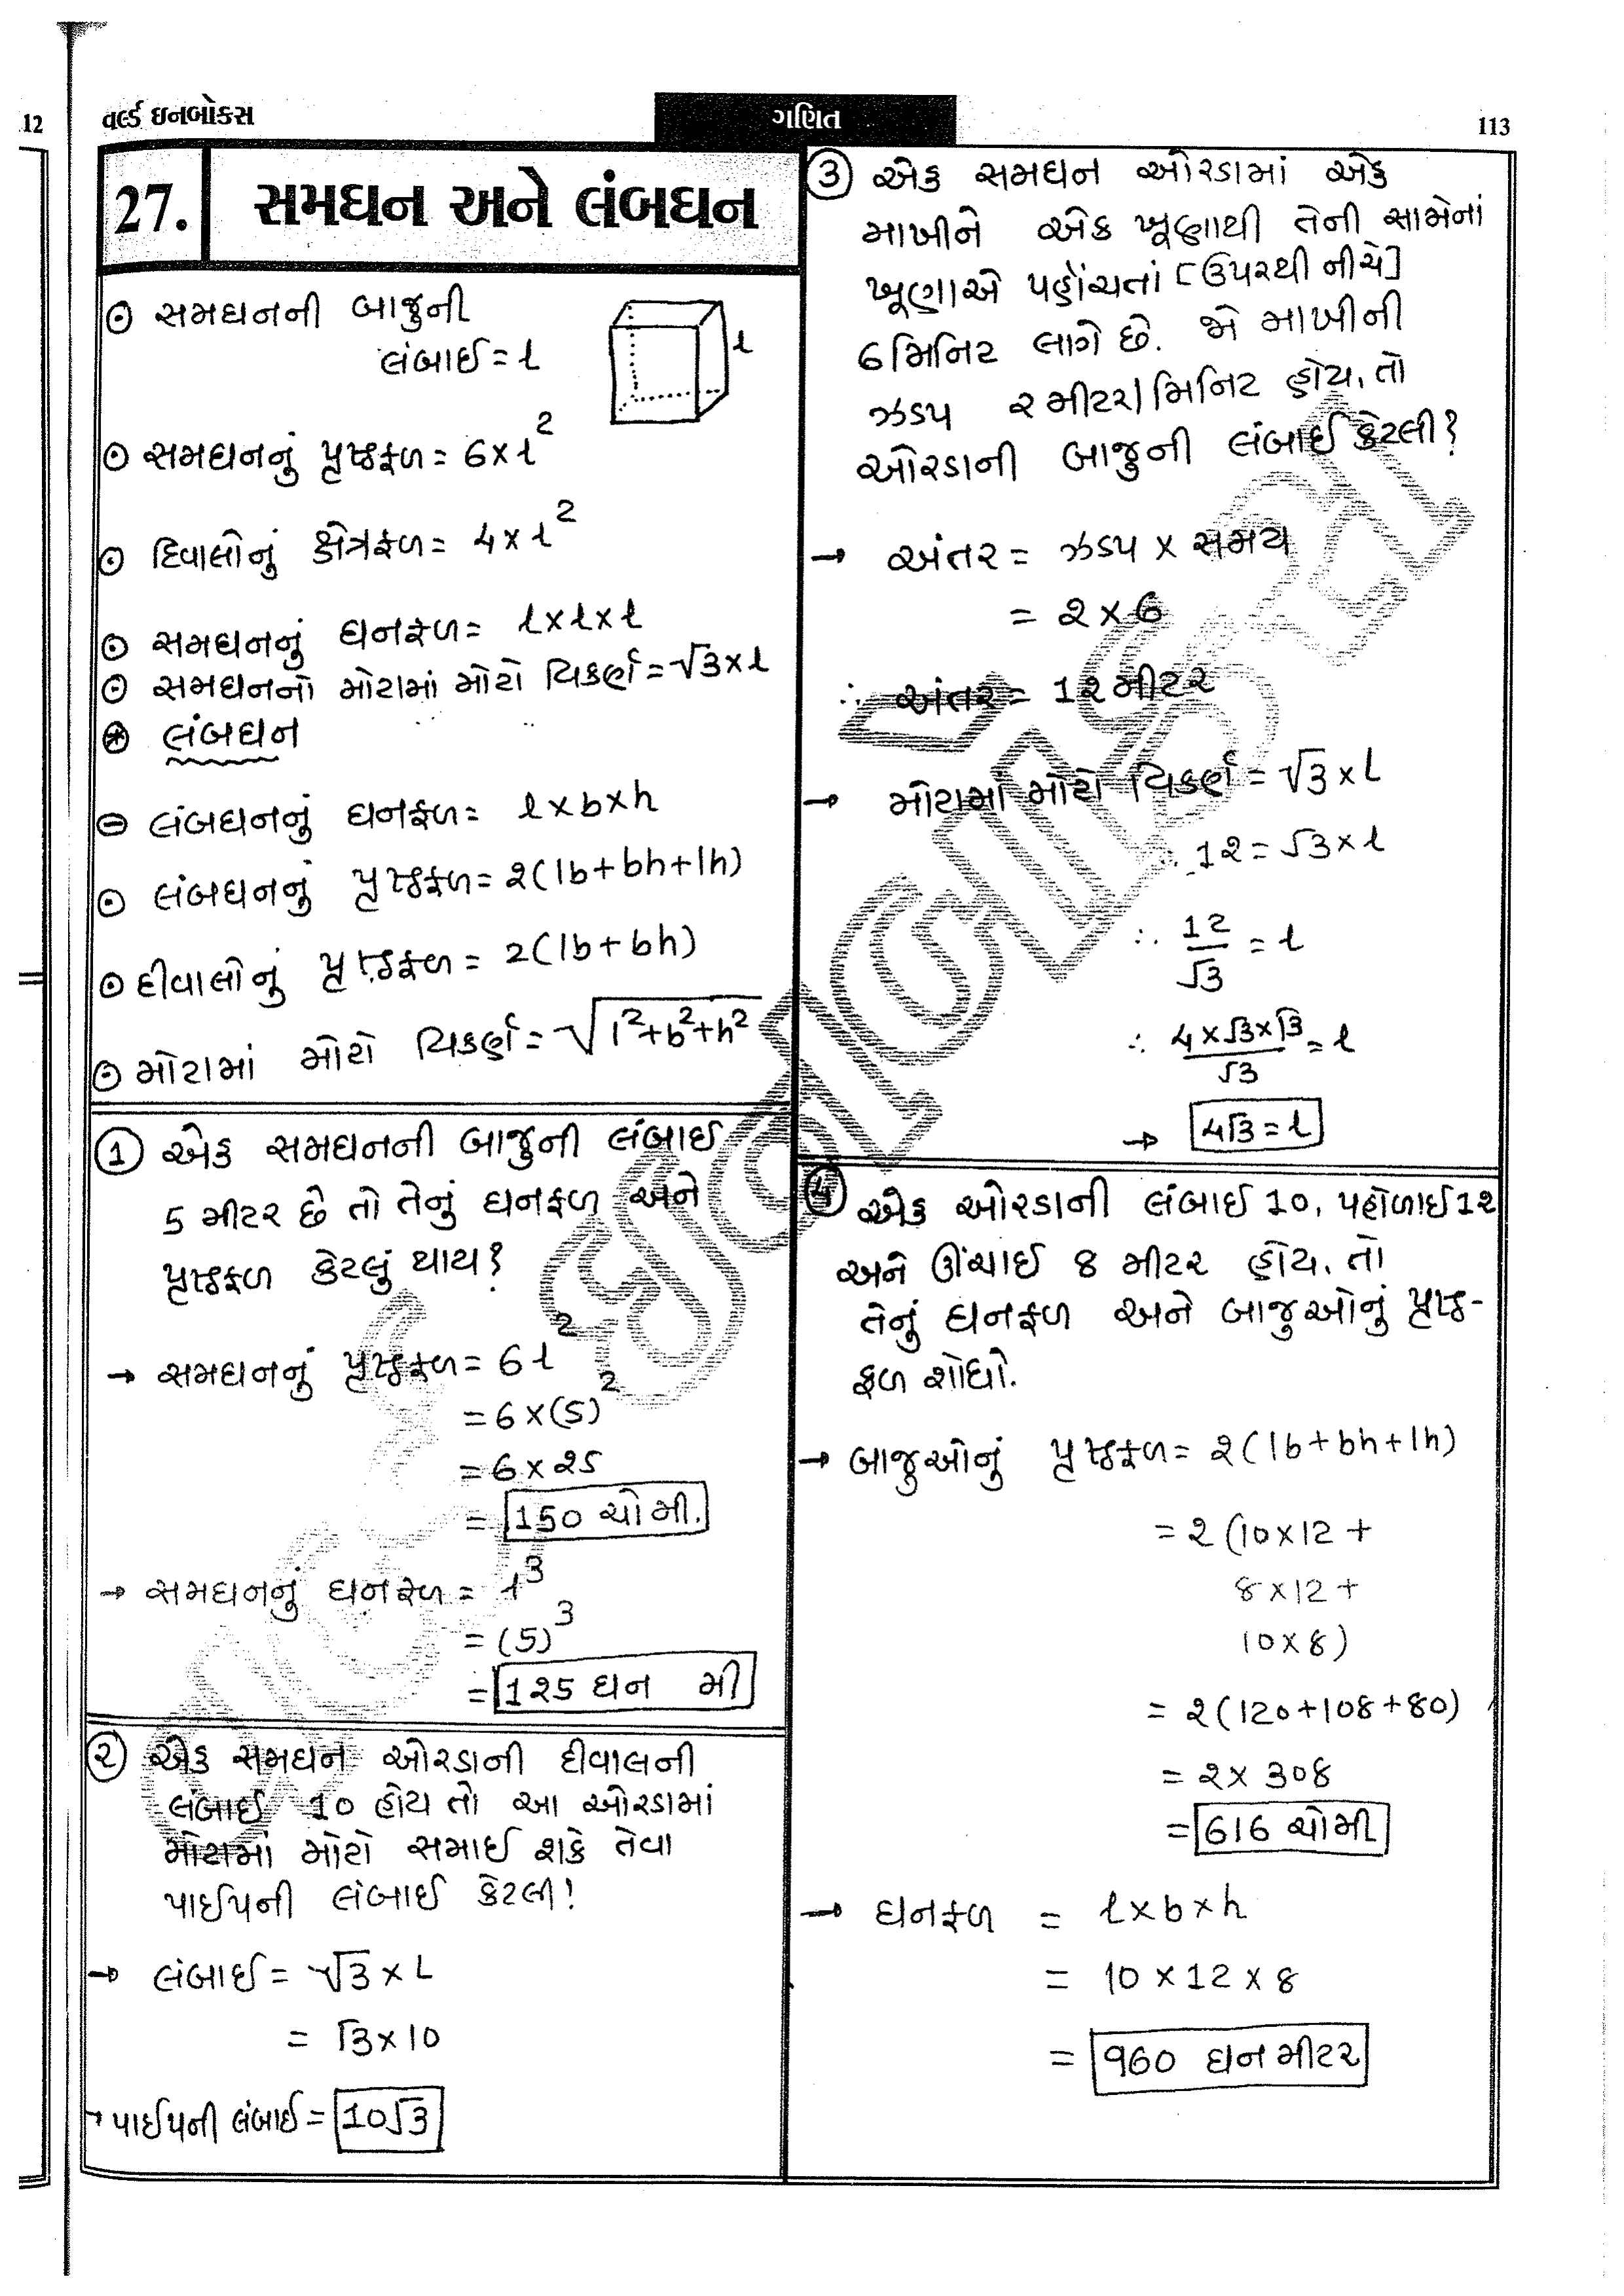 12
વર્લ્ડ ઇનબોક્સ
ગણિત
113
27.
સમઘન અને લંબઘન
⊙ સમઘનની બાજુની
લંબાઈ = l
l
⊙ સમઘનનું પૃષ્ઠફળ = 6 × l²
⊙ દિવાલોનું ક્ષેત્રફળ = 4 × l²
⊙ સમઘનનું ઘનફળ = l × l × l
⊙ સમઘનનો મોટામાં મોટો વિકર્ણ = √3 × l
⊛ લંબઘન
⊖ લંબઘનનું ઘનફળ = l × b × h
⊙ લંબઘનનું પૃષ્ઠફળ = ૨(lb + bh + lh)
⊙ દીવાલોનું પૃષ્ઠફળ = 2(lb + bh)
⊙ મોટામાં મોટો વિકર્ણ = √(l² + b² + h²)
① એક સમઘનની બાજુની લંબાઈ
5 મીટર છે તો તેનું ઘનફળ અને
પૃષ્ઠફળ કેટલું થાય?
→ સમઘનનું પૃષ્ઠફળ = 6 l²
= 6 × (5)²
= 6 × ૨5
= 150 ચો મી.
→ સમઘનનું ઘનફળ = l³
= (5)³
= 1૨5 ઘન મી
② એક સમઘન ઓરડાની દીવાલની
લંબાઈ 10 હોય તો આ ઓરડામાં
મોટામાં મોટો સમાઈ શકે તેવા
પાઈપની લંબાઈ કેટલી!
→ લંબાઈ = √3 × L
= √3 × 10
→ પાઈપની લંબાઈ = 10√3
③ એક સમઘન ઓરડામાં એક
માખીને એક ખૂણાથી તેની સામેનાં
ખૂણાએ પહોંચતાં [ઉપરથી નીચે]
6 મિનિટ લાગે છે. જો માખીની
ઝડપ ૨ મીટર/મિનિટ હોય, તો
ઓરડાની બાજુની લંબાઈ કેટલી?
→ અંતર = ઝડપ × સમય
= ૨ × 6
∴ અંતર = 1૨ મીટર
→ મોટામાં મોટો વિકર્ણ = √3 × L
∴ 1૨ = √3 × l
∴ 12/√3 = l
∴ 4 × √3 × √3/√3 = l
→ 4√3 = l
④ એક ઓરડાની લંબાઈ 10, પહોળાઈ 1૨
અને ઊંચાઈ 8 મીટર હોય, તો
તેનું ઘનફળ અને બાજુઓનું પૃષ્ઠ-
ફળ શોધો.
→ બાજુઓનું પૃષ્ઠફળ = ૨(lb + bh + lh)
= ૨ (10 × 12 +
8 × 12 +
10 × 8)
= ૨(120 + 108 + 80)
= ૨ × 308
= 616 ચોમી
→ ઘનફળ = l × b × h
= 10 × 12 × 8
= 960 ઘન મીટર